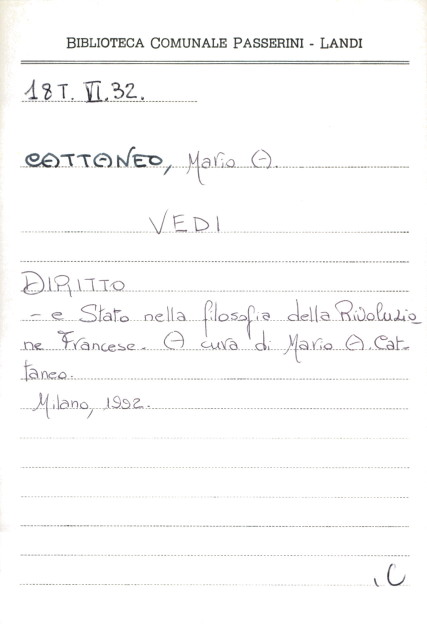 BIBLIOTECA COMUNALE PASSERINI - LANDI
18 T. VI. 32.
CATTANEO, Mario A.
VEDI
DIRITTO
- e Stato nella filosofia della Rivoluzio
ne Francese. A cura di Mario A. Cat-
taneo.
Milano, 1992.